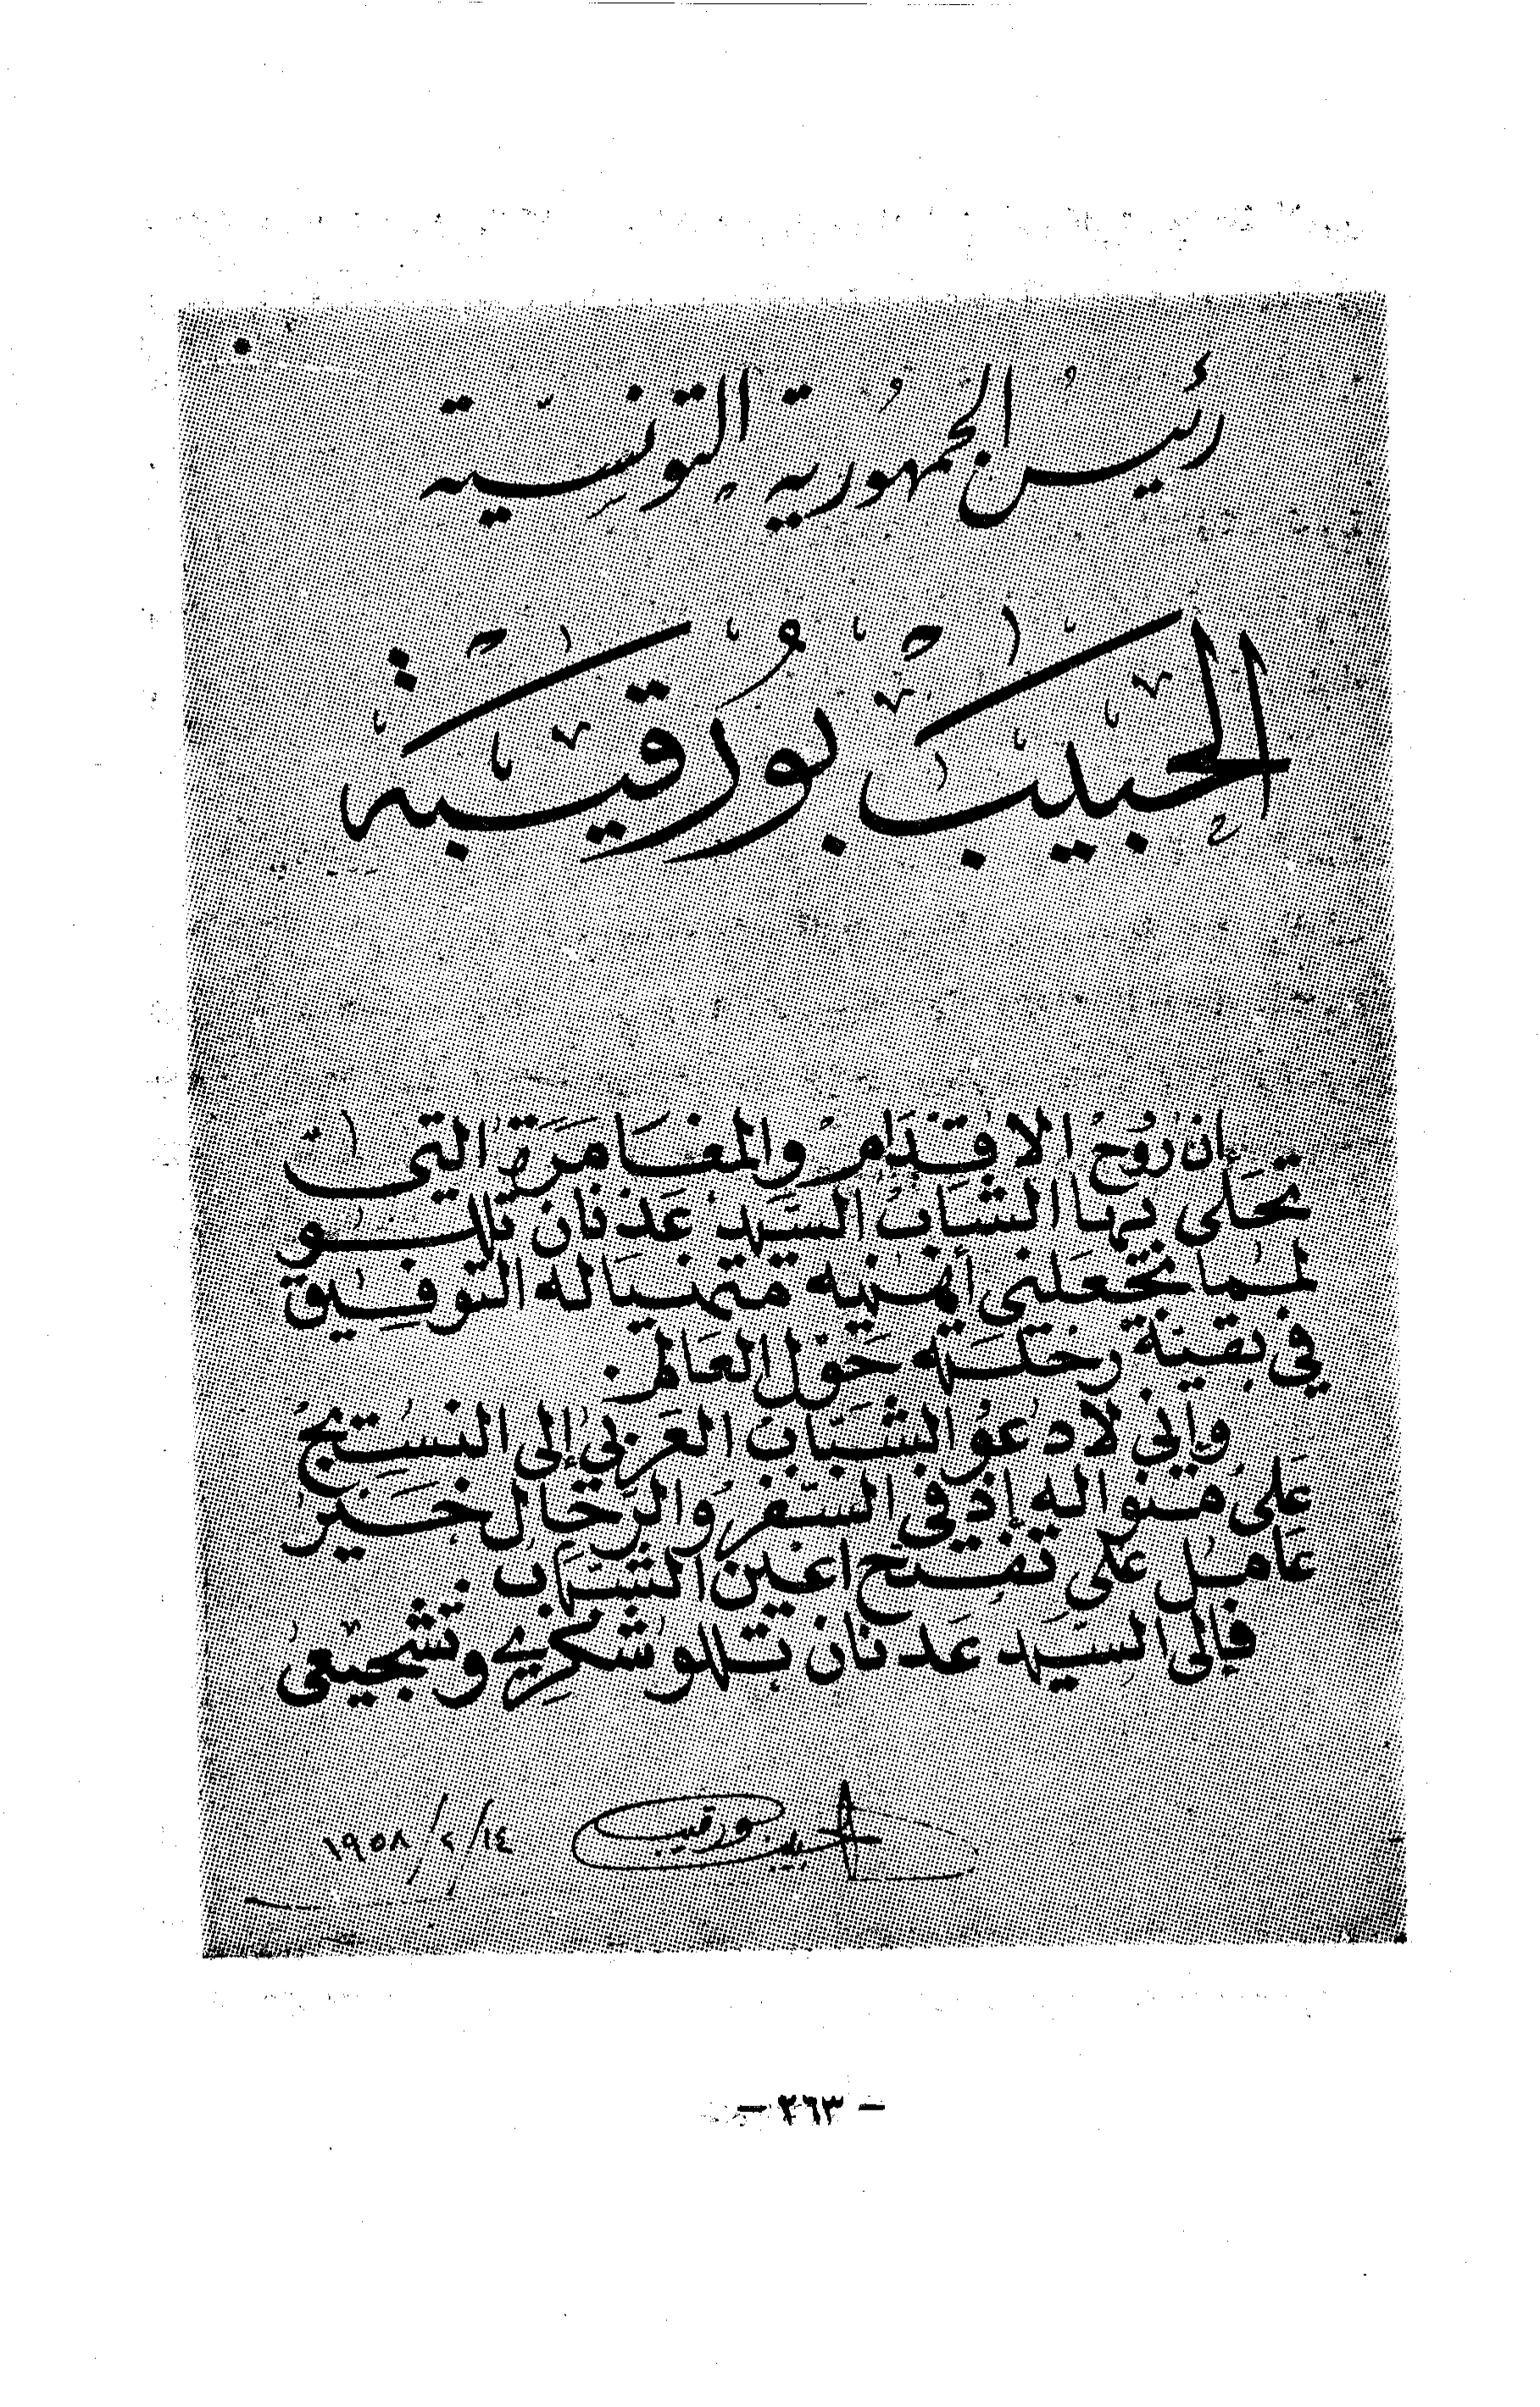 رئيس الجمهورية التونسية
الحبيب بورقيبة
إن روح الاقدام والمغامرة التي
تحلى بها الشاب السيد عدنان تللو
لمما تجعلني أهنيه متمنيا له التوفيق
في بقية رحلته حول العالم.
وإني لادعو الشباب العربي إلى النسج
على منواله إذ في السفر والترحال خير
عامل على تفتح اعين الشباب.
فإلى السيد عدنان تللو شكري وتشجيعي
الحبيب بورقيبة ١٤/٢/١٩٥٨
- ٢٦٣ -